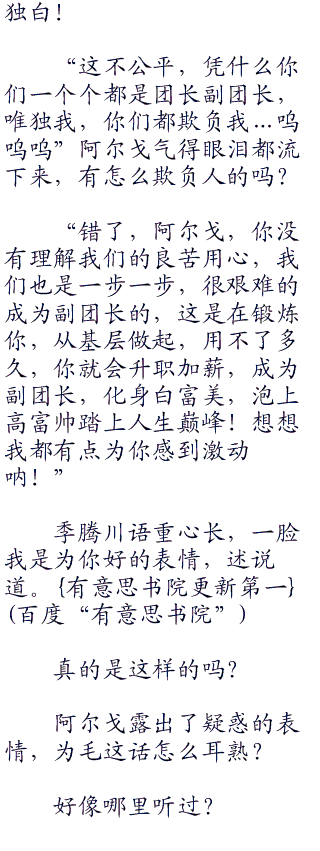 独白！
“这不公平，凭什么你
们一个个都是团长副团长，
唯独我，你们都欺负我...呜
呜呜”阿尔戈气得眼泪都流
下来，有怎么欺负人的吗？
“错了，阿尔戈，你没
有理解我们的良苦用心，我
们也是一步一步，很艰难的
成为副团长的，这是在锻炼
你，从基层做起，用不了多
久，你就会升职加薪，成为
副团长，化身白富美，泡上
高富帅踏上人生巅峰！想想
我都有点为你感到激动
呐！”
季腾川语重心长，一脸
我是为你好的表情，述说
道。{有意思书院更新第一}
(百度“有意思书院”)
真的是这样的吗？
阿尔戈露出了疑惑的表
情，为毛这话怎么耳熟？
好像哪里听过？